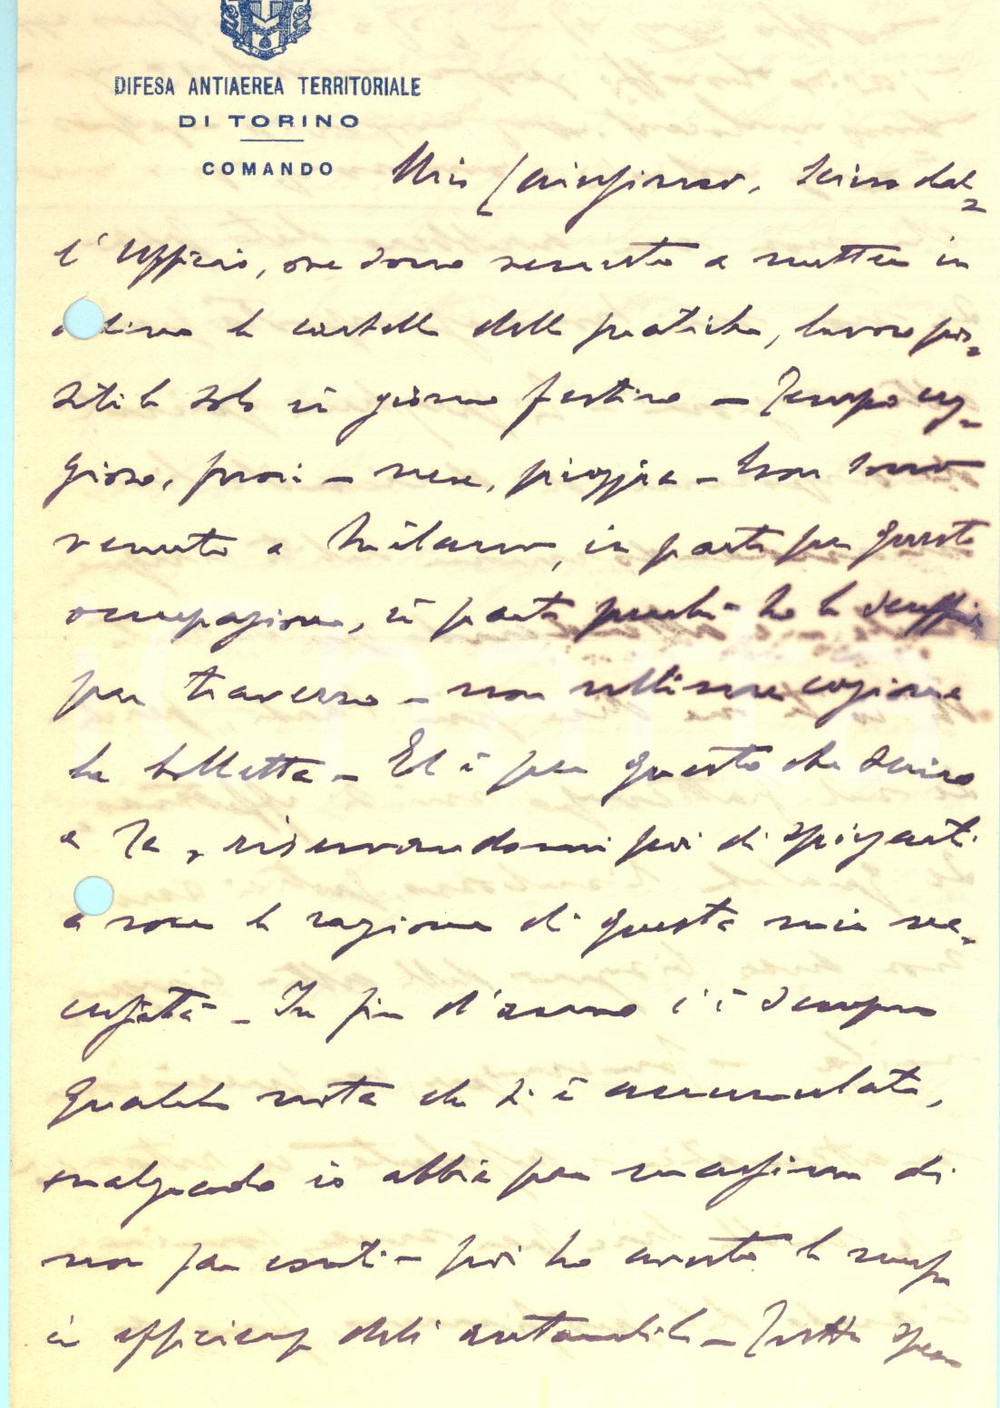 DIFESA ANTIAEREA TERRITORIALE
DI TORINO
COMANDO
Mio Scrivo dal=
l'Ufficio, ove sono venuto a mettere in
ordine le cartelle delle pratiche, lavoro pos=
sibile solo in giorno festivo – Tempo ug=
gioso, fuori – neve, pioggia – Non sono
venuto a Milano, in parte per questa
occupazione, in parte perché ho la scuffia
per traverso – non ultima cagione
la bolletta – Ed è per questo che scrivo
a Te, riservandomi poi di spiegarti
a voce la ragione di questa mia ne=
cessità – In fin d'anno c'è sempre
qualche nota che s'è accumulata,
malgrado io abbia per massima di
non far conti – poi ho avuto la messa
in efficienza dell'automobile – Tutte spese